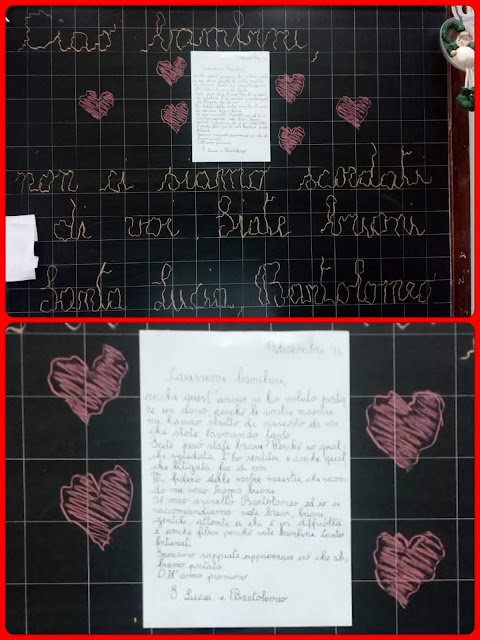 Cari bambini,
non ci siamo scordati
di voi Siate buoni
Santa Lucia Bartolomeo
dicembre
Carissimi bambini,
anche quest'anno vi ho voluto porta
re un dono perché le vostre maestre
mi hanno scritto di nascosto da voi
che state lavorando tanto.
Siete però stati bravi? Perché io qual
che sgridata l'ho sentita e anche qual
che litigata fra di voi.
Mi fiderò delle vostre maestre che secon
do me sono troppo buone.
Il mio asinello Bartolomeo ed io vi
raccomandiamo siate bravi, buoni,
gentili, attenti a chi è in difficoltà
e anche felici perché siete bambini tanto
fortunati.
Speriamo sappiate apprezzare ciò che ab
biamo portato.
All'anno prossimo.
S Lucia e Bartolomeo